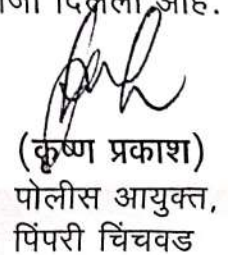 दिलेली आहे.
(कृष्ण प्रकाश)
पोलीस आयुक्त,
पिंपरी चिंचवड